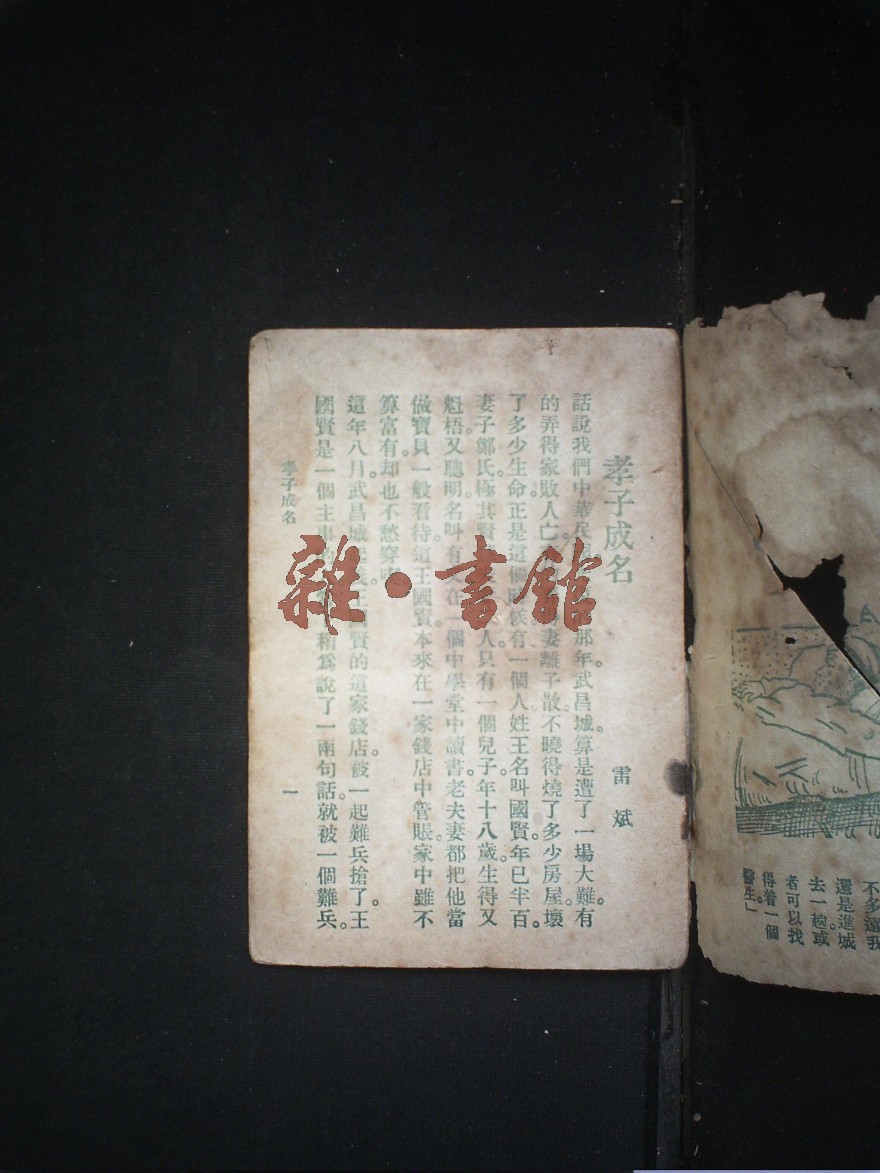 孝子成名
雷斌
話說我們中華民 那年。武昌城。算是遭了一場大難。有
的弄得家敗人亡。 妻離子散。不曉得燒了多少房屋。壞
了多少生命。正是這個時候。有一個人姓王名叫國賢。年已半百。
妻子鄭氏。極其賢 人。只有一個兒子。年十八歲。生得又
魁梧。又聰明。名叫有 在一個中學堂中讀書。老夫妻都把他當
做寶貝一般看待。這王國賢本來在一家錢店中管賬。家中雖不
算富有。却也不愁穿
這年八月。武昌城 國賢的這家錢店。被一起難兵搶了。王
國賢是一個主 稍爲說了一兩句話。就被一個難兵。
孝子成名
一
雜·書館
不多遠我
還是進城
去一趟。或
者可以找
得着一個
醫生。」